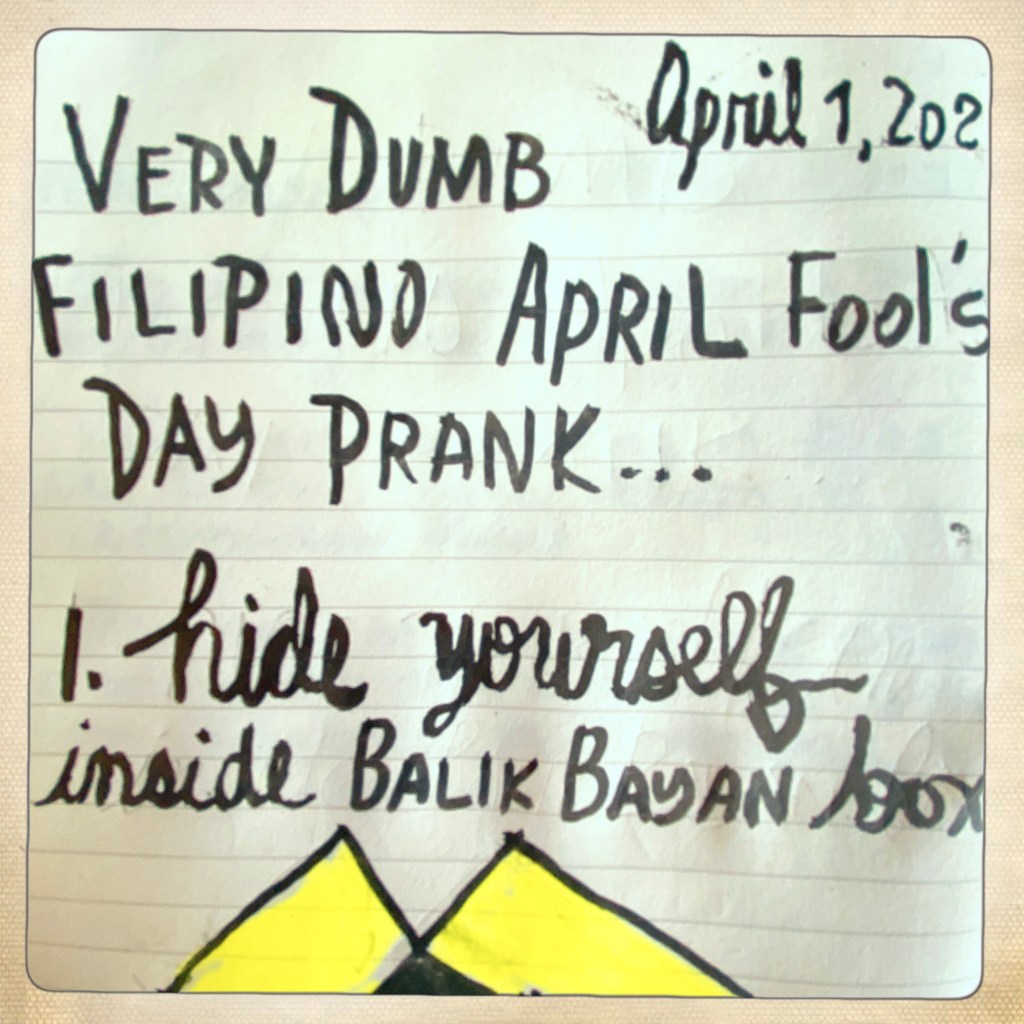 April 1, 202
VERY DUMB
FILIPINO APRIL Fool's
DAY PRANK...
1. hide yourself
inside BALIK BAYAN box